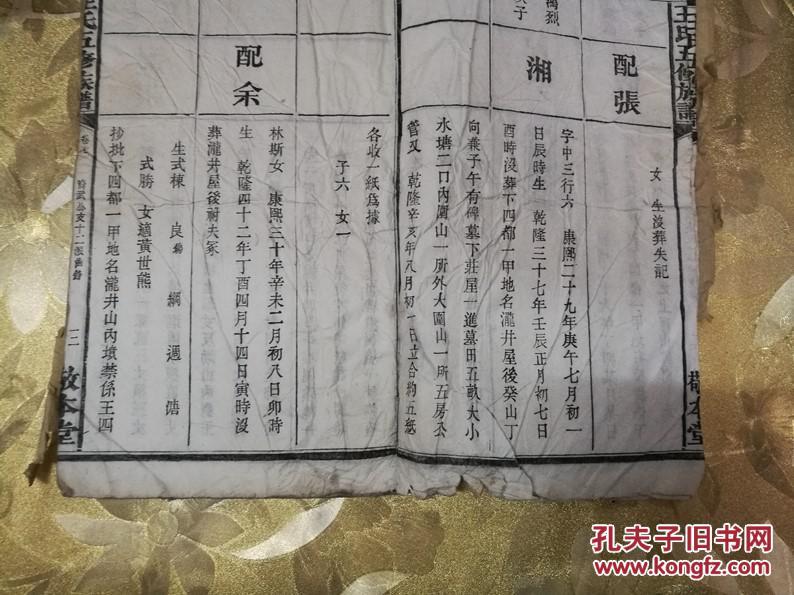 王氏五修族譜
敬本堂
配張
女 生沒葬失記
湘
字中三行六 康熙二十九年庚午七月初一
日辰時生 乾隆三十七年壬辰正月初七日
酉時沒葬下四都一甲地名瀧井屋後癸山丁
向兼子午有碑墓下莊屋一進墓田五畝大小
水塘二口內圍山一所外大圍山一所五房公
管又 乾隆辛亥年八月初一日立合約五紙
各收一紙為據
子六 女一
配余
林斯女 康熙三十年辛未二月初八日卯時
生 乾隆四十二年丁酉四月十四日寅時沒
葬瀧井屋後祔夫冢
生式棟 良 綱 週
式勝 女適黃世熊
抄批下四都一甲地名瀧井山內墳禁係王四
王氏五修族譜
三
敬本堂
孔夫子旧书网
www.kongfz.com